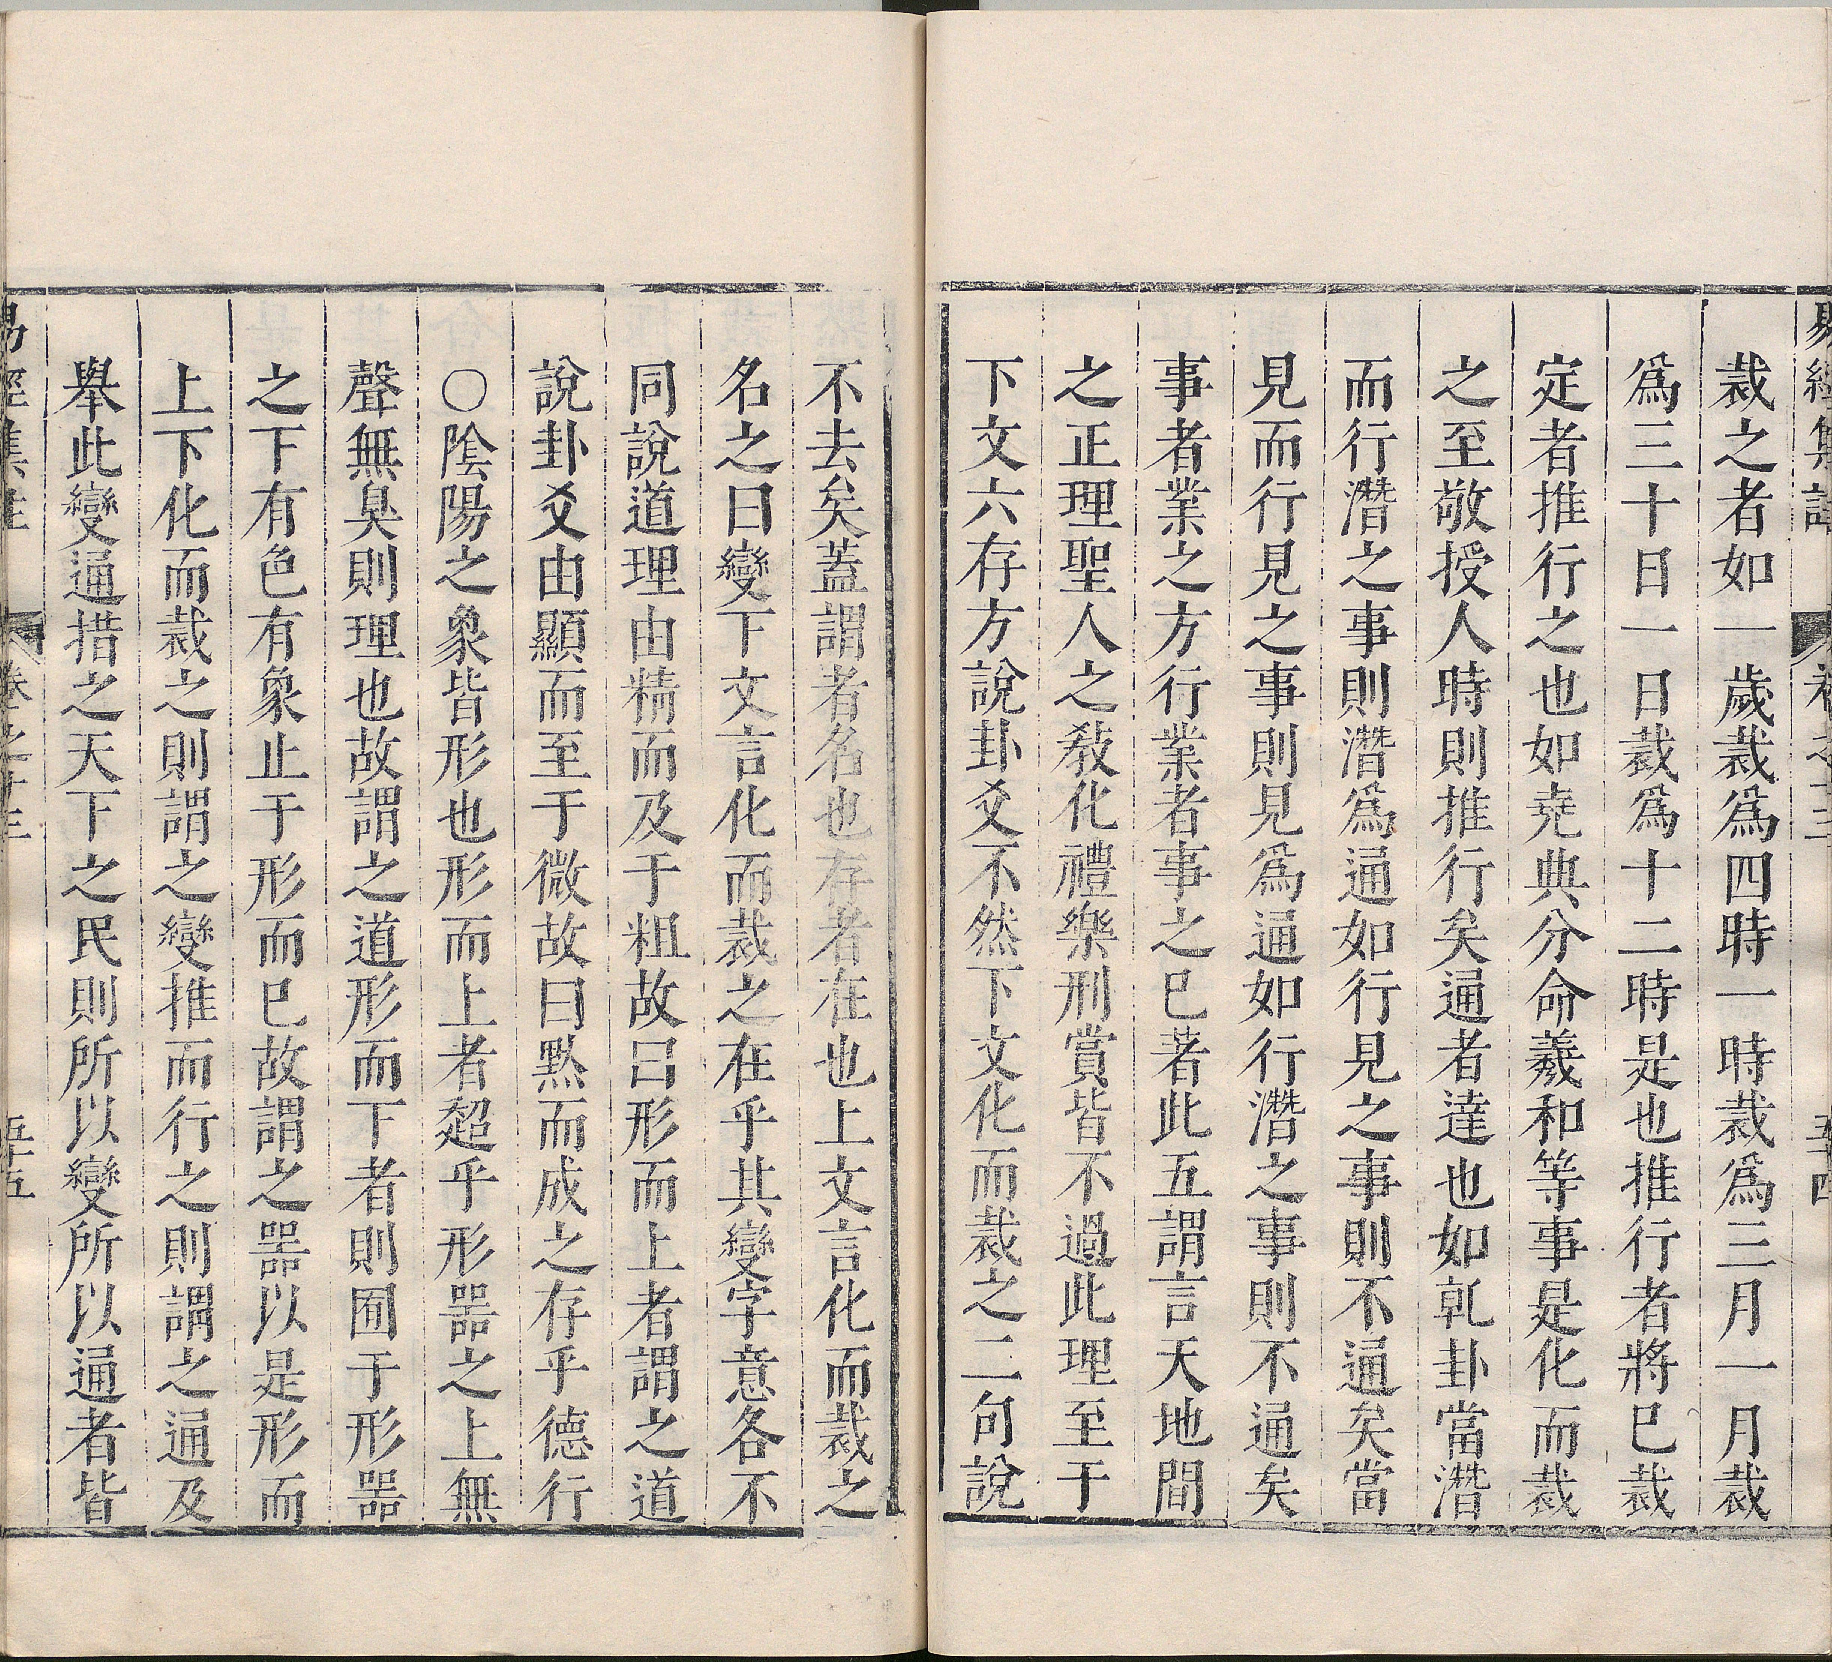 易經集註 卷之十三 五十四
裁之者如一歲裁爲四時一時裁爲三月一月裁
爲三十日一日裁爲十二時是也推行者將已裁
定者推行之也如堯典分命羲和等事是化而裁
之至敬授人時則推行矣通者達也如乹卦當潛
而行潛之事則潛爲通如行見之事則不通矣當
見而行見之事則見爲通如行潛之事則不通矣
事者業之方行業者事之已著此五謂言天地間
之正理聖人之教化禮樂刑賞皆不過此理至于
下文六存方說卦爻不然下文化而裁之二句說
不去矣蓋謂者名也存者在也上文言化而裁之
名之曰變下文言化而裁之在乎其變字意各不
同說道理由精而及于粗故曰形而上者謂之道
說卦爻由顯而至于微故曰黙而成之存乎德行
○陰陽之象皆形也形而上者超乎形噐之上無
聲無臭則理也故謂之道形而下者則囿于形噐
之下有色有象止于形而已故謂之噐以是形而
上下化而裁之則謂之變推而行之則謂之通及
舉此變通措之天下之民則所以變所以通者皆
易經集註 卷之十三 五十五